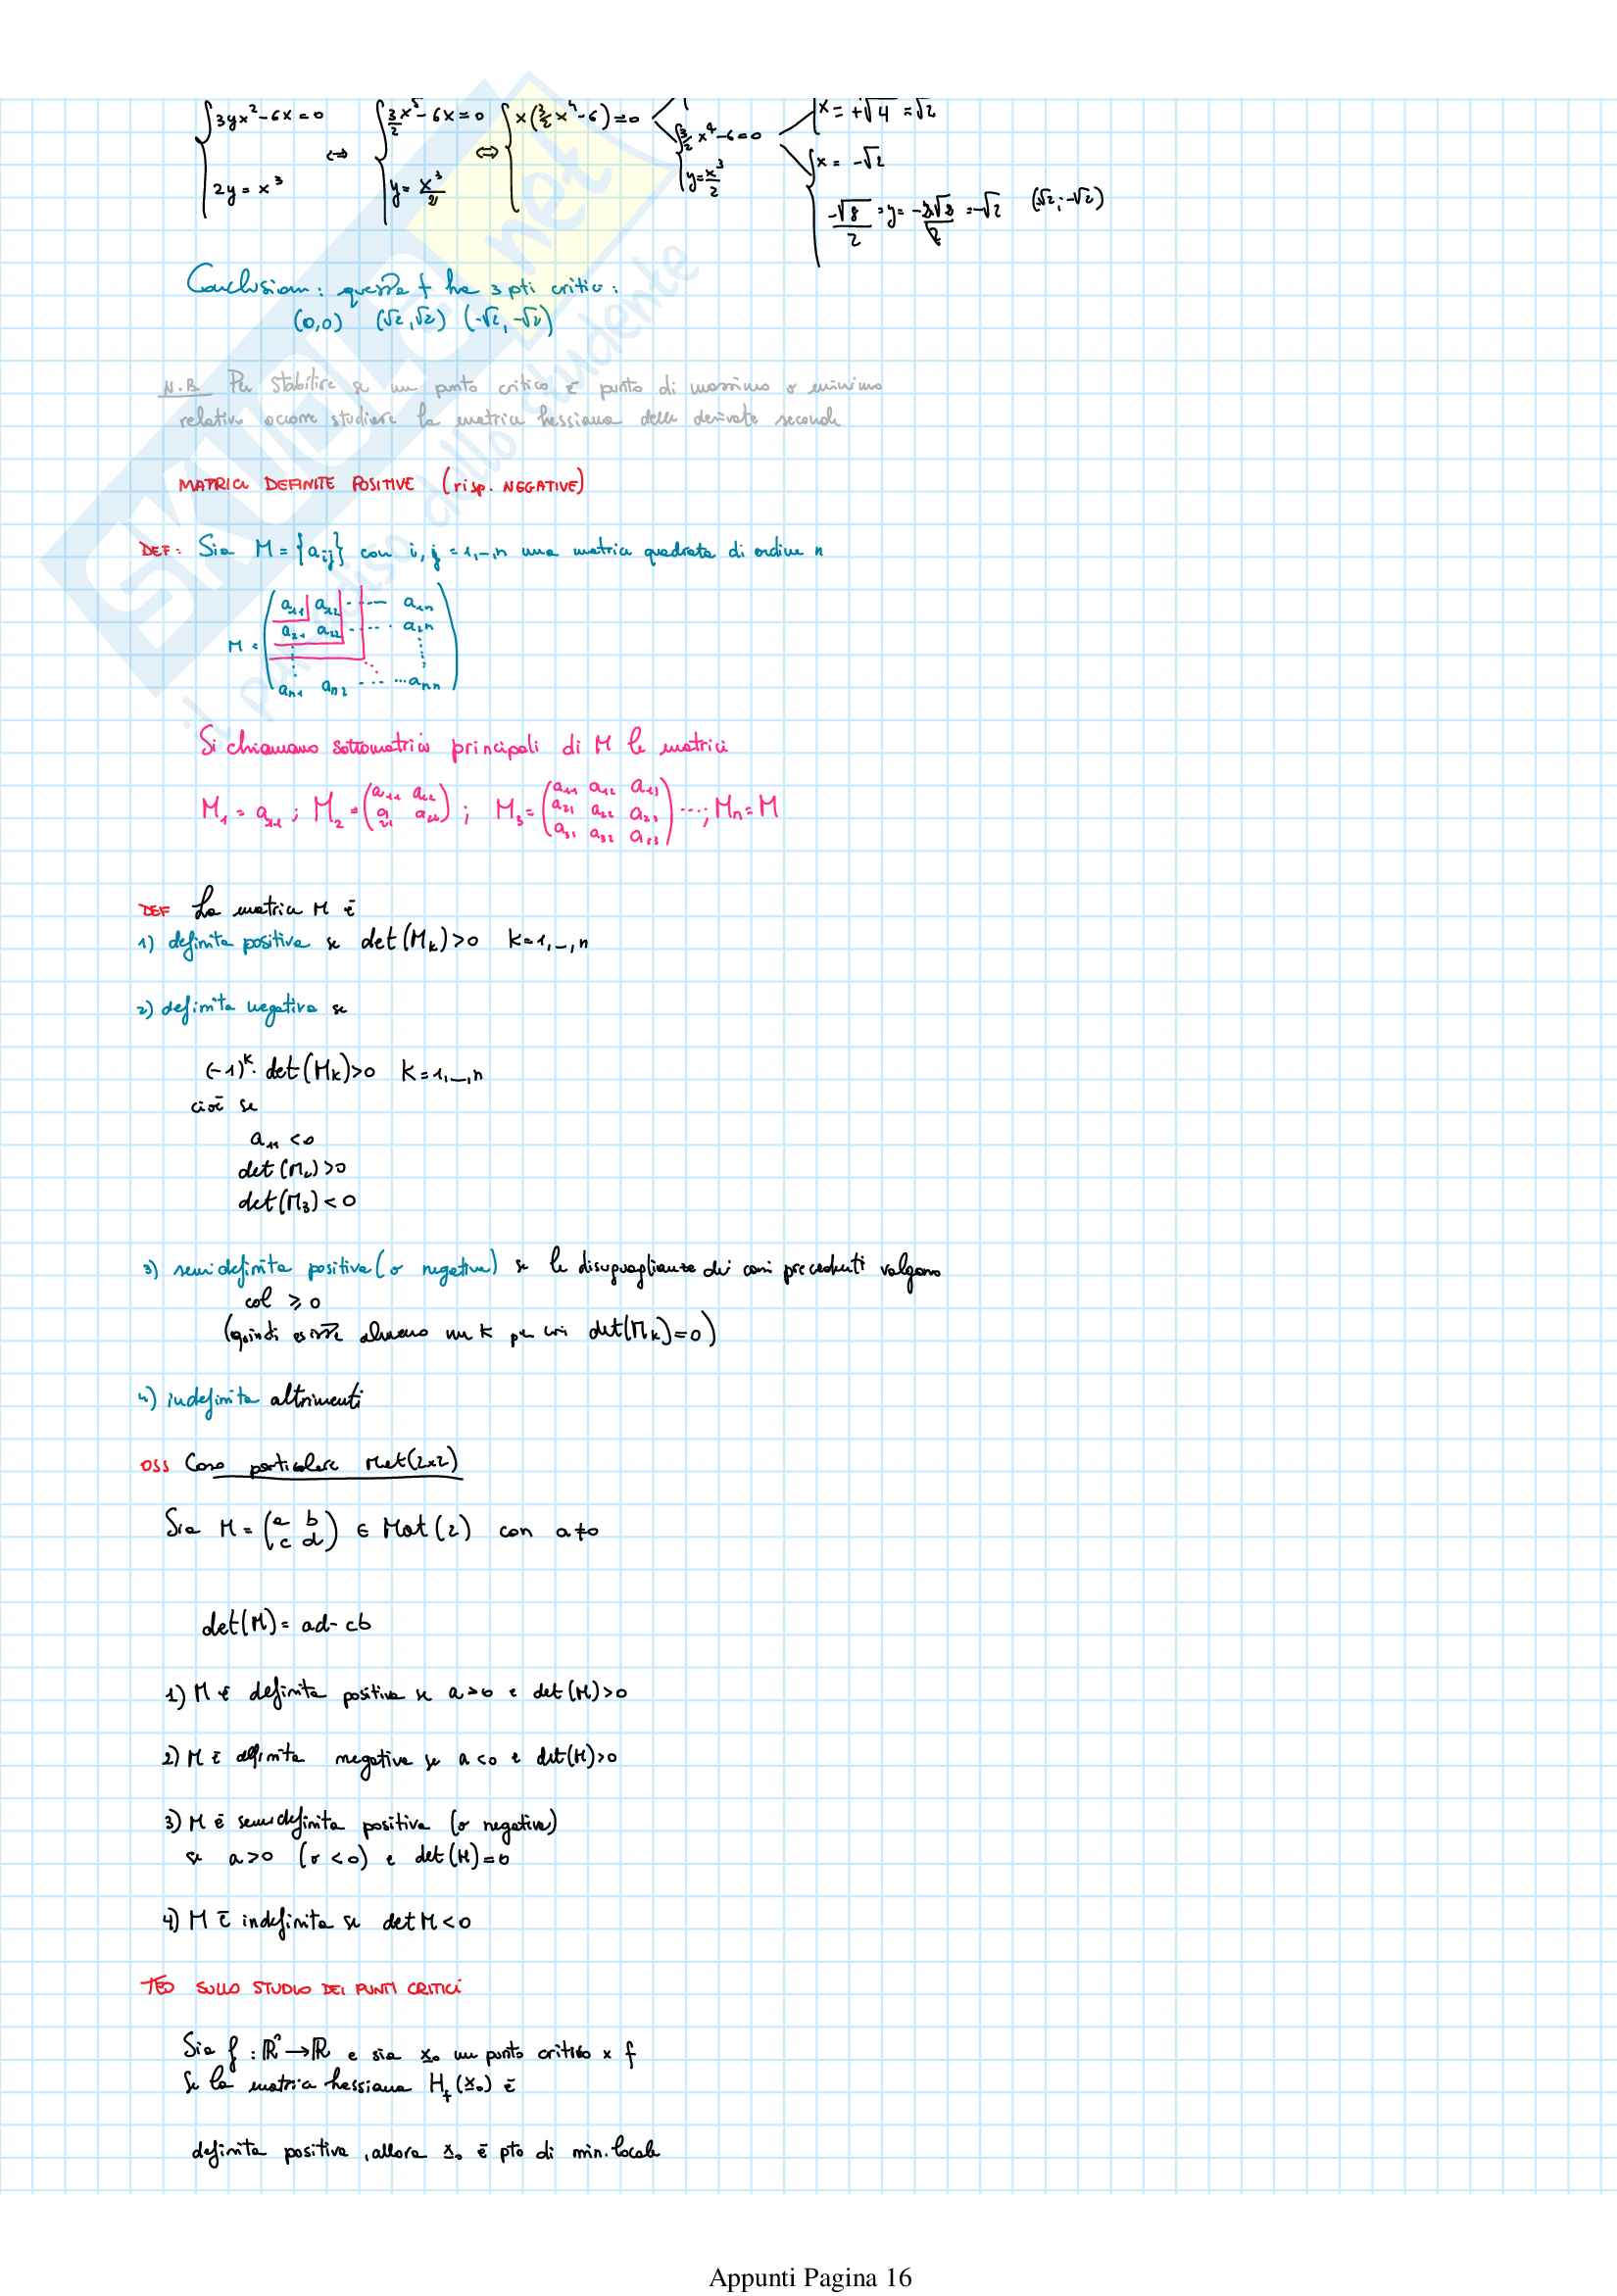 { 3yx² - 6x = 0 ⇔ { 3/2 x⁵ - 6x = 0 ⇔ { x(3/2 x⁴ - 6) = 0
{ 2y = x³ { y = x³/2
{ 3/2 x⁴ - 6 = 0
{ y = x³/2
{ x = +∜4 = √2
{ x = -√2
-√8/2 = y = -2√2/2 = -√2 (√2; -√2)
Conclusioni: questa f ha 3 pti critici:
(0,0) (√2,√2) (-√2,-√2)
N.B. Per stabilire se un punto critico è punto di massimo o minimo
relativo occorre studiare la matrice hessiana delle derivate seconde
MATRICI DEFINITE POSITIVE (risp. NEGATIVE)
DEF: Sia M = {aij} con i, j = 1,_,n una matrice quadrata di ordine n
M = ( a₁₁ a₁₂ ... a₁ₙ
a₂₁ a₂₂ ... a₂ₙ
⋮ ⋱ ⋮
aₙ₁ aₙ₂ ... aₙₙ )
Si chiamano sottomatrici principali di M le matrici
M₁ = a₁₁ ; M₂ = (a₁₁ a₁₂ / a₂₁ a₂₂) ; M₃ = (a₁₁ a₁₂ a₁₃ / a₂₁ a₂₂ a₂₃ / a₃₁ a₃₂ a₃₃) ...; Mn = M
DEF La matrice M è
1) definita positiva se det(Mk) > 0 k = 1,_,n
2) definita negativa se
(-1)ᵏ · det(Mk) > 0 k = 1,_,n
cioè se
a₁₁ < 0
det(M₂) > 0
det(M₃) < 0
3) semidefinita positiva (o negativa) se le disuguaglianze dei casi precedenti valgono
col ≥ 0
(quindi esiste almeno un k per cui det(Mk) = 0)
4) indefinita altrimenti
OSS Caso particolare Mat(2x2)
Sia M = (a b / c d) ∈ Mat(2) con a≠0
det(M) = ad - cb
1) M è definita positiva se a > 0 e det(M) > 0
2) M è definita negativa se a < 0 e det(M) > 0
3) M è semidefinita positiva (o negativa)
se a > 0 (o < 0) e det(M) = 0
4) M è indefinita se det M < 0
TEO SULLO STUDIO DEI PUNTI CRITICI
Sia f : ℝⁿ → ℝ e sia x₀ un punto critico x f
Se la matrice hessiana Hf(x₀) è
definita positiva, allora x₀ è pto di min. locale
Appunti Pagina 16
SKUOLA.net
il paradiso dello studente